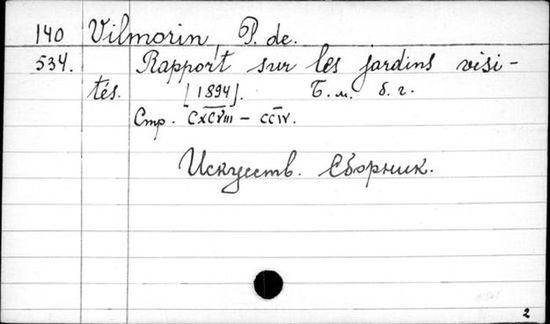 140 Vilmorin, P. de.
534. Rapport sur les jardins visi-
tés. [1894]. Б. м. б. г.
Стр. CXCVIII – CCIV.
Искусств. Сборник.
2